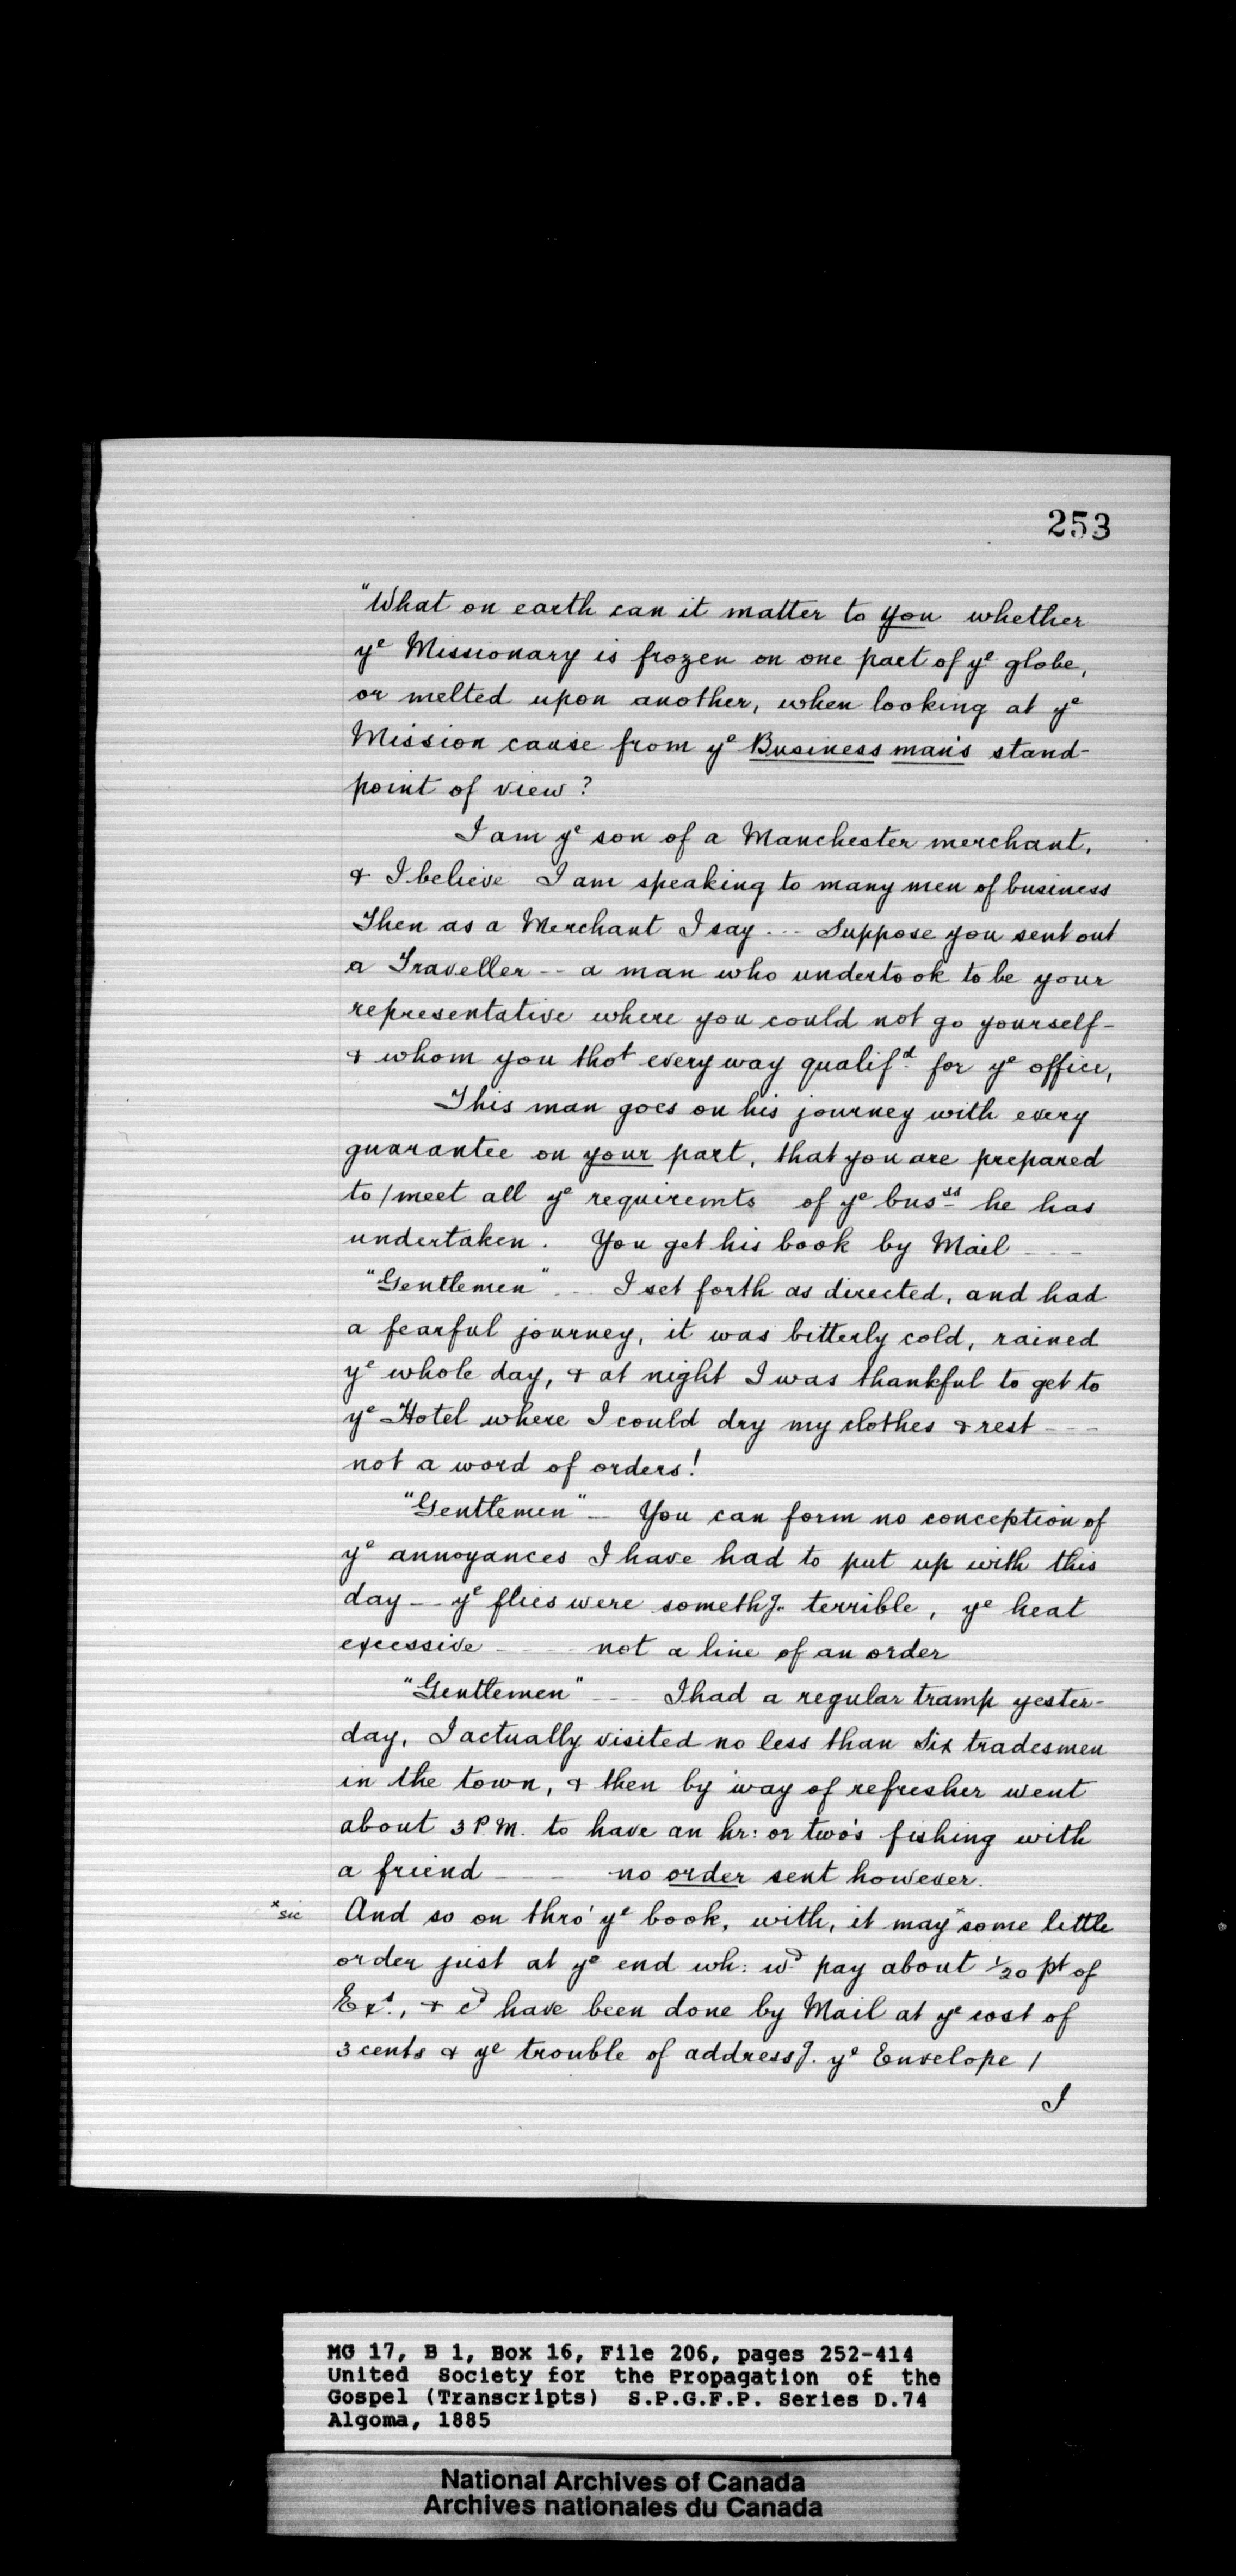 253
"What on earth can it matter to you whether
ye Missionary is frozen on one part of ye globe,
or melted upon another, when looking at ye
Mission cause from ye Business man's stand-
point of view?
I am ye son of a Manchester merchant,
& I believe I am speaking to many men of business
Then as a Merchant I say --- Suppose you sent out
a Traveller -- a man who undertook to be your
representative where you could not go yourself -
& whom you thot every way qualifd. for ye office,
This man goes on his journey with every
guarantee on your part, that you are prepared
to / meet all ye requiremts of ye busss he has
undertaken. You get his book by Mail ---
"Gentlemen" -- I set forth as directed, and had
a fearful journey, it was bitterly cold, rained
ye whole day, & at night I was thankful to get to
ye Hotel where I could dry my clothes & rest ---
not a word of orders!
"Gentlemen" -- You can form no conception of
ye annoyances I have had to put up with this
day -- ye flies were somethg. terrible, ye heat
excessive ---- not a line of an order
"Gentlemen" --- I had a regular tramp yester-
day, I actually visited no less than Six tradesmen
in the town, & then by way of refresher went
about 3 P.M. to have an hr: or two's fishing with
a friend --- no order sent however.
*sic And so on thro' ye book, with, it may* some little
order just at ye end wh: wd. pay about 1/20 pt of
Exs., & cd have been done by Mail at ye cost of
3 cents & ye trouble of addressg. ye Envelope /
I
MG 17, B 1, Box 16, File 206, pages 252-414
United Society for the Propagation of the
Gospel (Transcripts) S.P.G.F.P. Series D.74
Algoma, 1885
National Archives of Canada
Archives nationales du Canada